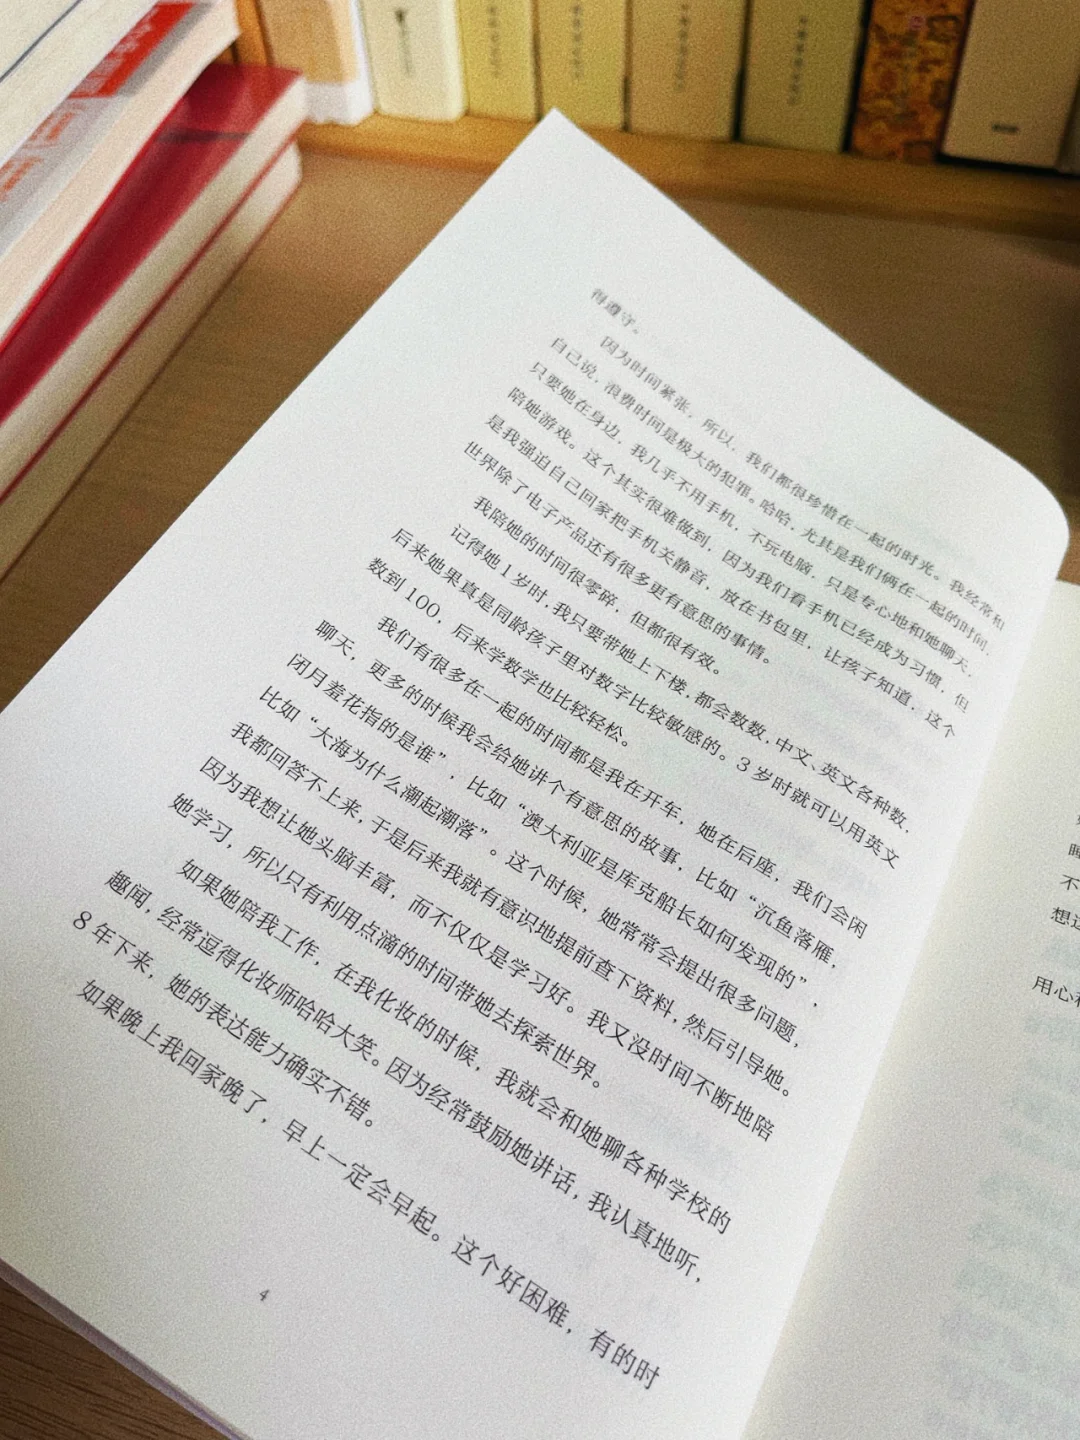 得遵守。
因为时间紧张，所以，我们都很珍惜在一起的时光。我经常和
自己说，浪费时间是极大的犯罪。哈哈，尤其是我们俩在一起的时间，
只要她在身边，我几乎不用手机，不玩电脑，只是专心地和她聊天，
陪她游戏。这个其实很难做到，因为我们看手机已经成为习惯，但
是我强迫自己回家把手机关静音，放在书包里，让孩子知道，这个
世界除了电子产品还有很多更有意思的事情。
我陪她的时间很零碎，但都很有效。
记得她1岁时，我只要带她上下楼，都会数数，中文、英文各种数，
后来她果真是同龄孩子里对数字比较敏感的。3岁时就可以用英文
数到100，后来学数学也比较轻松。
我们有很多在一起的时间都是我在开车，她在后座，我们会闲
聊天，更多的时候我会给她讲个有意思的故事，比如“沉鱼落雁，
闭月羞花指的是谁”，比如“澳大利亚是库克船长如何发现的”，
比如“大海为什么潮起潮落”。这个时候，她常常会提出很多问题，
我都回答不上来，于是后来我就有意识地提前查下资料，然后引导她。
因为我想让她头脑丰富，而不仅仅是学习好。我又没时间不断地陪
她学习，所以只有利用点滴的时间带她去探索世界。
如果她陪我工作，在我化妆的时候，我就会和她聊各种学校的
趣闻，经常逗得化妆师哈哈大笑。因为经常鼓励她讲话，我认真地听，
8年下来，她的表达能力确实不错。
如果晚上我回家晚了，早上一定会早起。这个好困难，有的时
4
不
想
用心